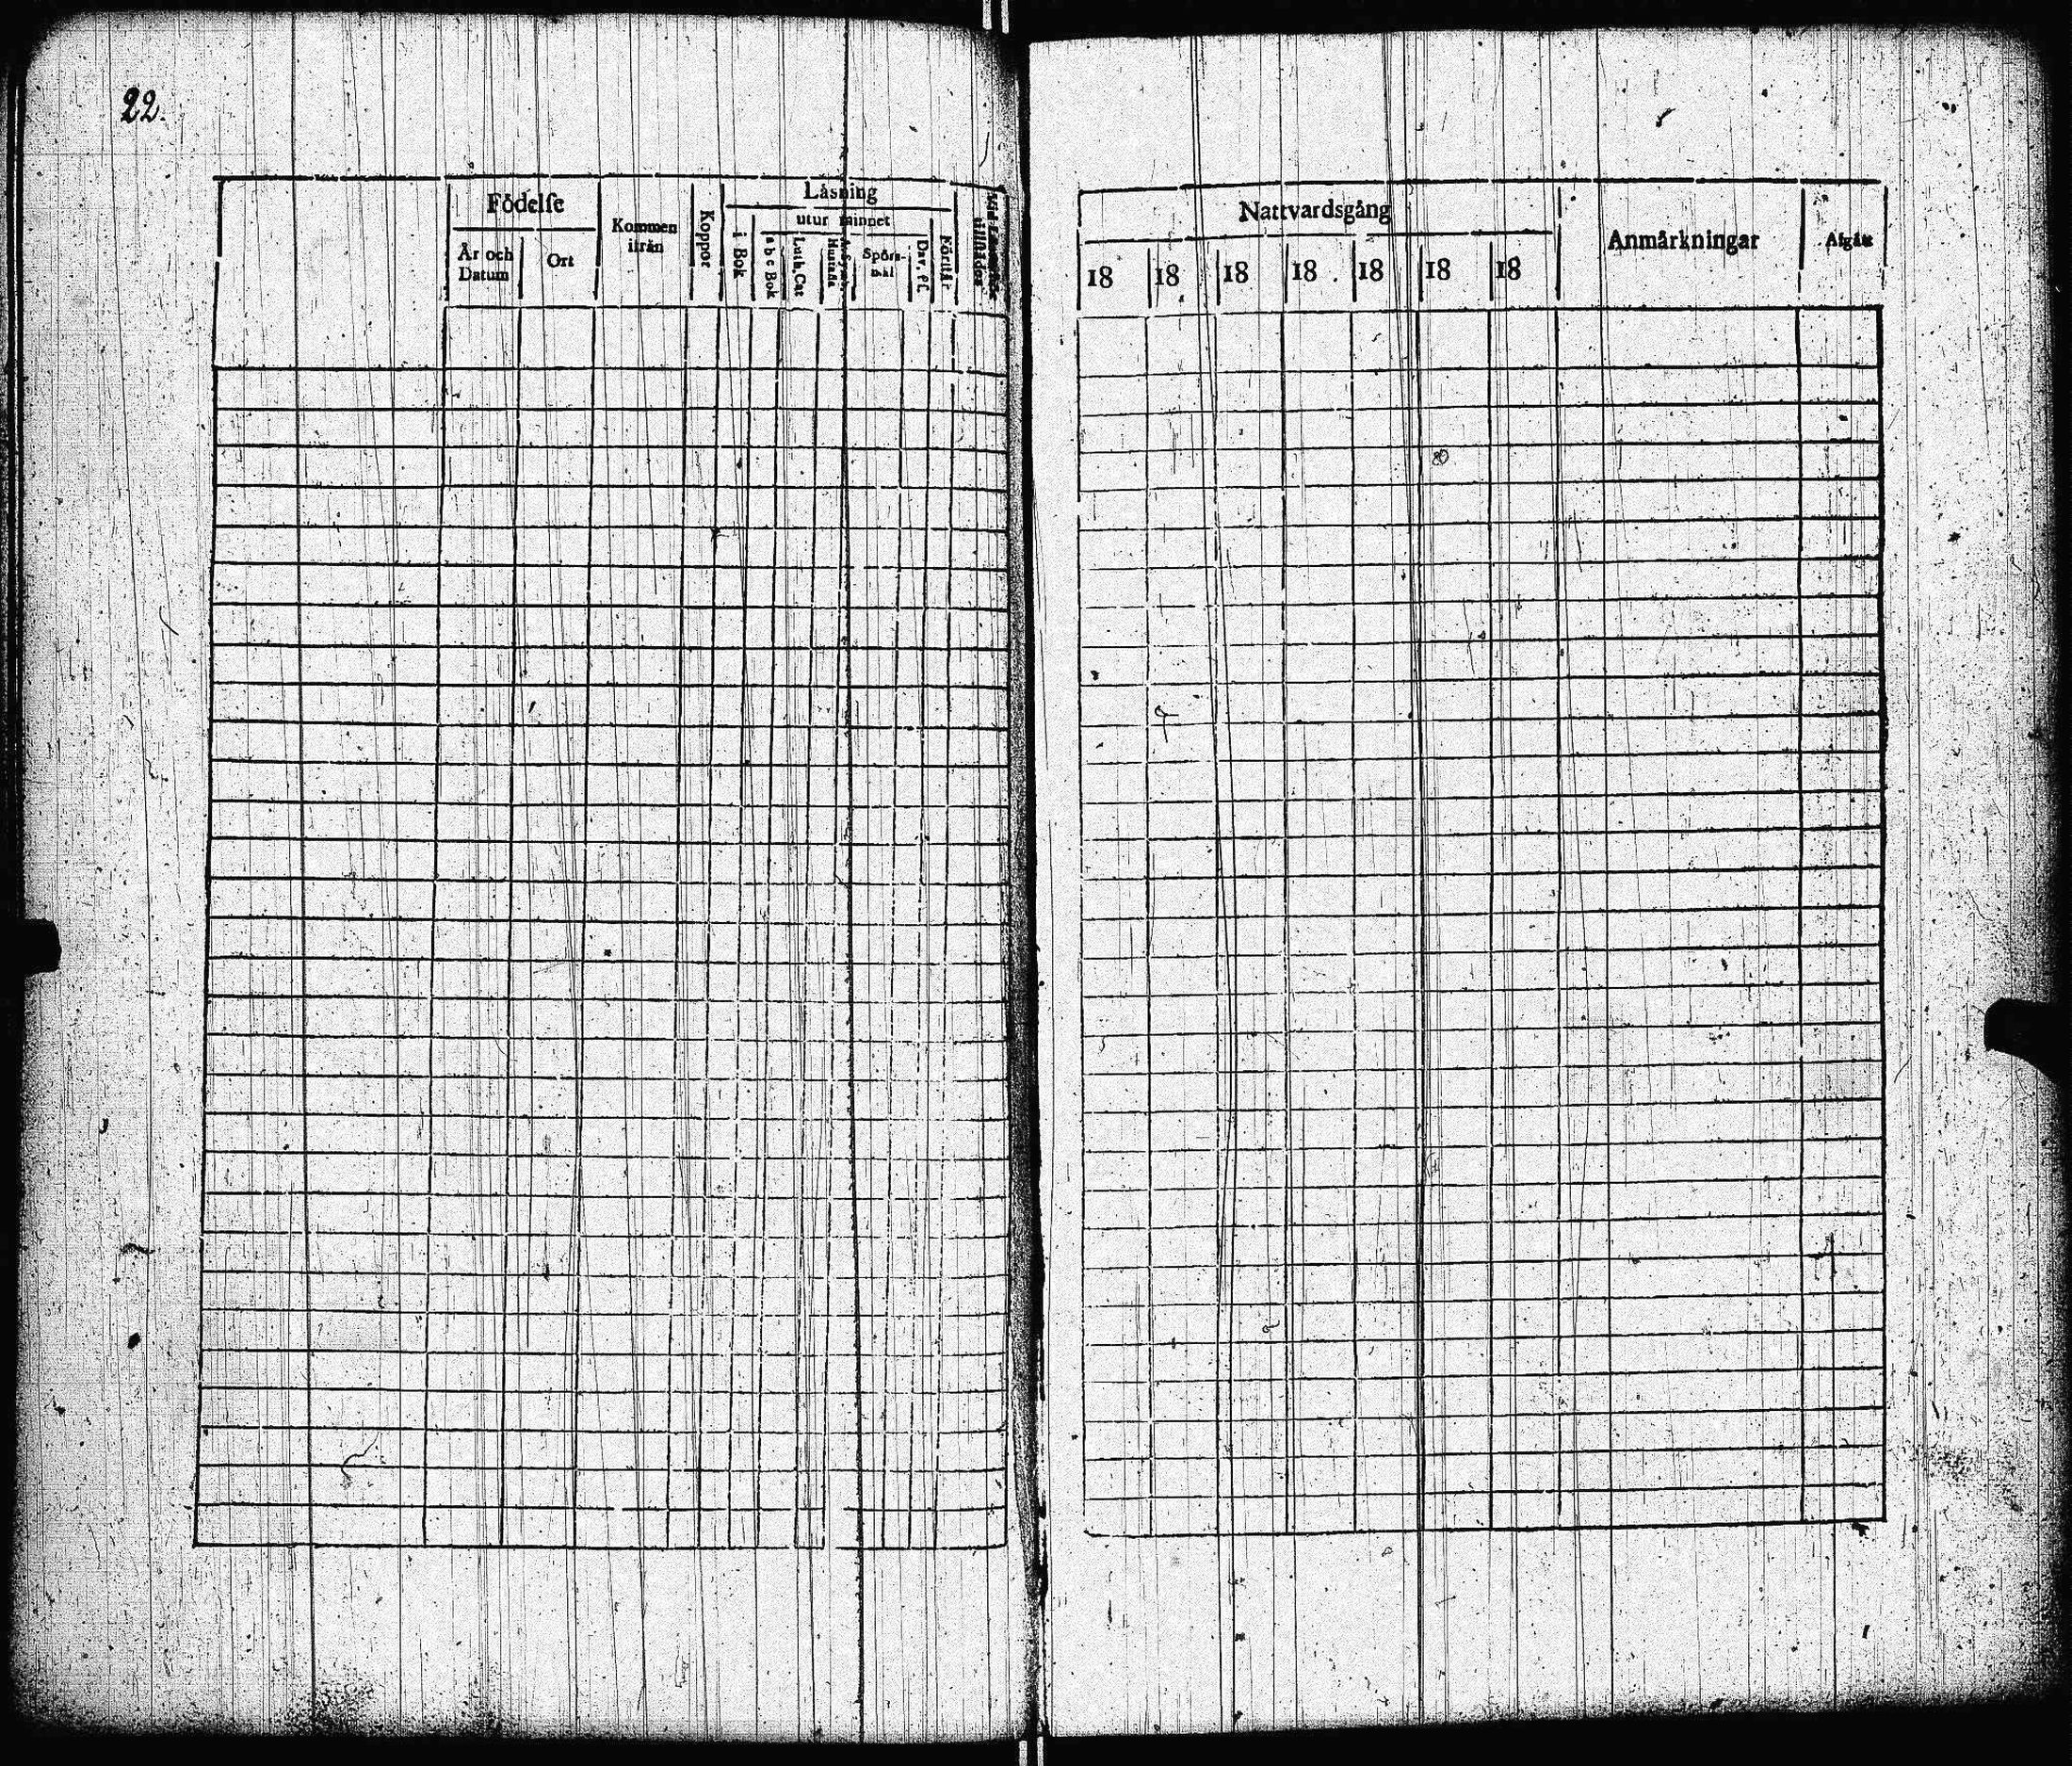 22.
Födelse
År och Datum
Ort
Kommen ifrån
Koppor
Läsning
i Bok
utur minnet
a b c Bok
Luth. Cat
Hustafla
Spörsmål
Dav. Ps.
Förstår
Nattvardsgång
18 18 18 18 18 18 18
Anmärkningar
Afgått